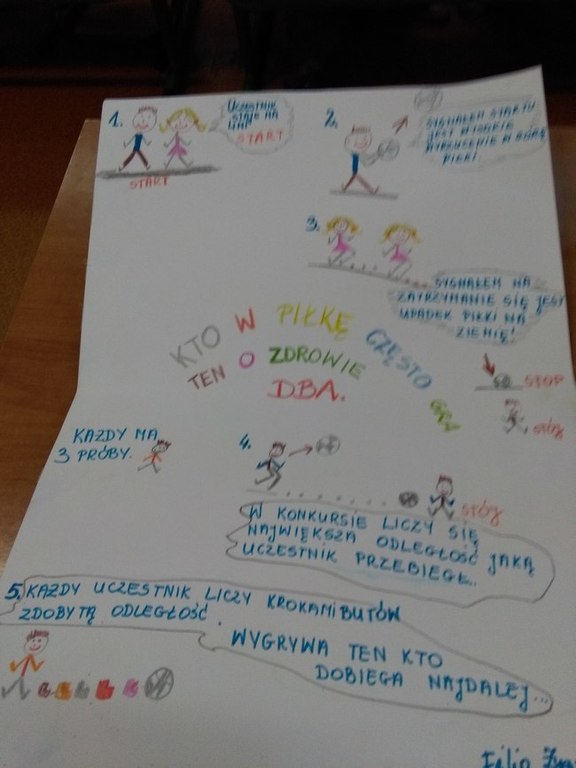 1.
UCZESTNIK
STAJE NA
LINII
START
START
2.
SYGNAŁEM STARTU
JEST WYSOKIE
WYRZUCENIE W GÓRĘ
PIŁKI
3.
SYGNAŁEM NA
ZATRZYMANIE SIĘ JEST
UPADEK PIŁKI NA
ZIEMIĘ!
KTO W PIŁKĘ CZĘSTO GRA
TEN O ZDROWIE
DBA.
STOP
STÓJ
KAŻDY MA
3 PRÓBY.
4.
STÓJ
W KONKURSIE LICZY SIĘ
NAJWIĘKSZA ODLEGŁOŚĆ JAKĄ
UCZESTNIK PRZEBIEGŁ...
5. KAŻDY UCZESTNIK LICZY KROKAMI BUTÓW
ZDOBYTĄ ODLEGŁOŚĆ.
WYGRYWA TEN KTO
DOBIEGA NAJDALEJ...
Filip